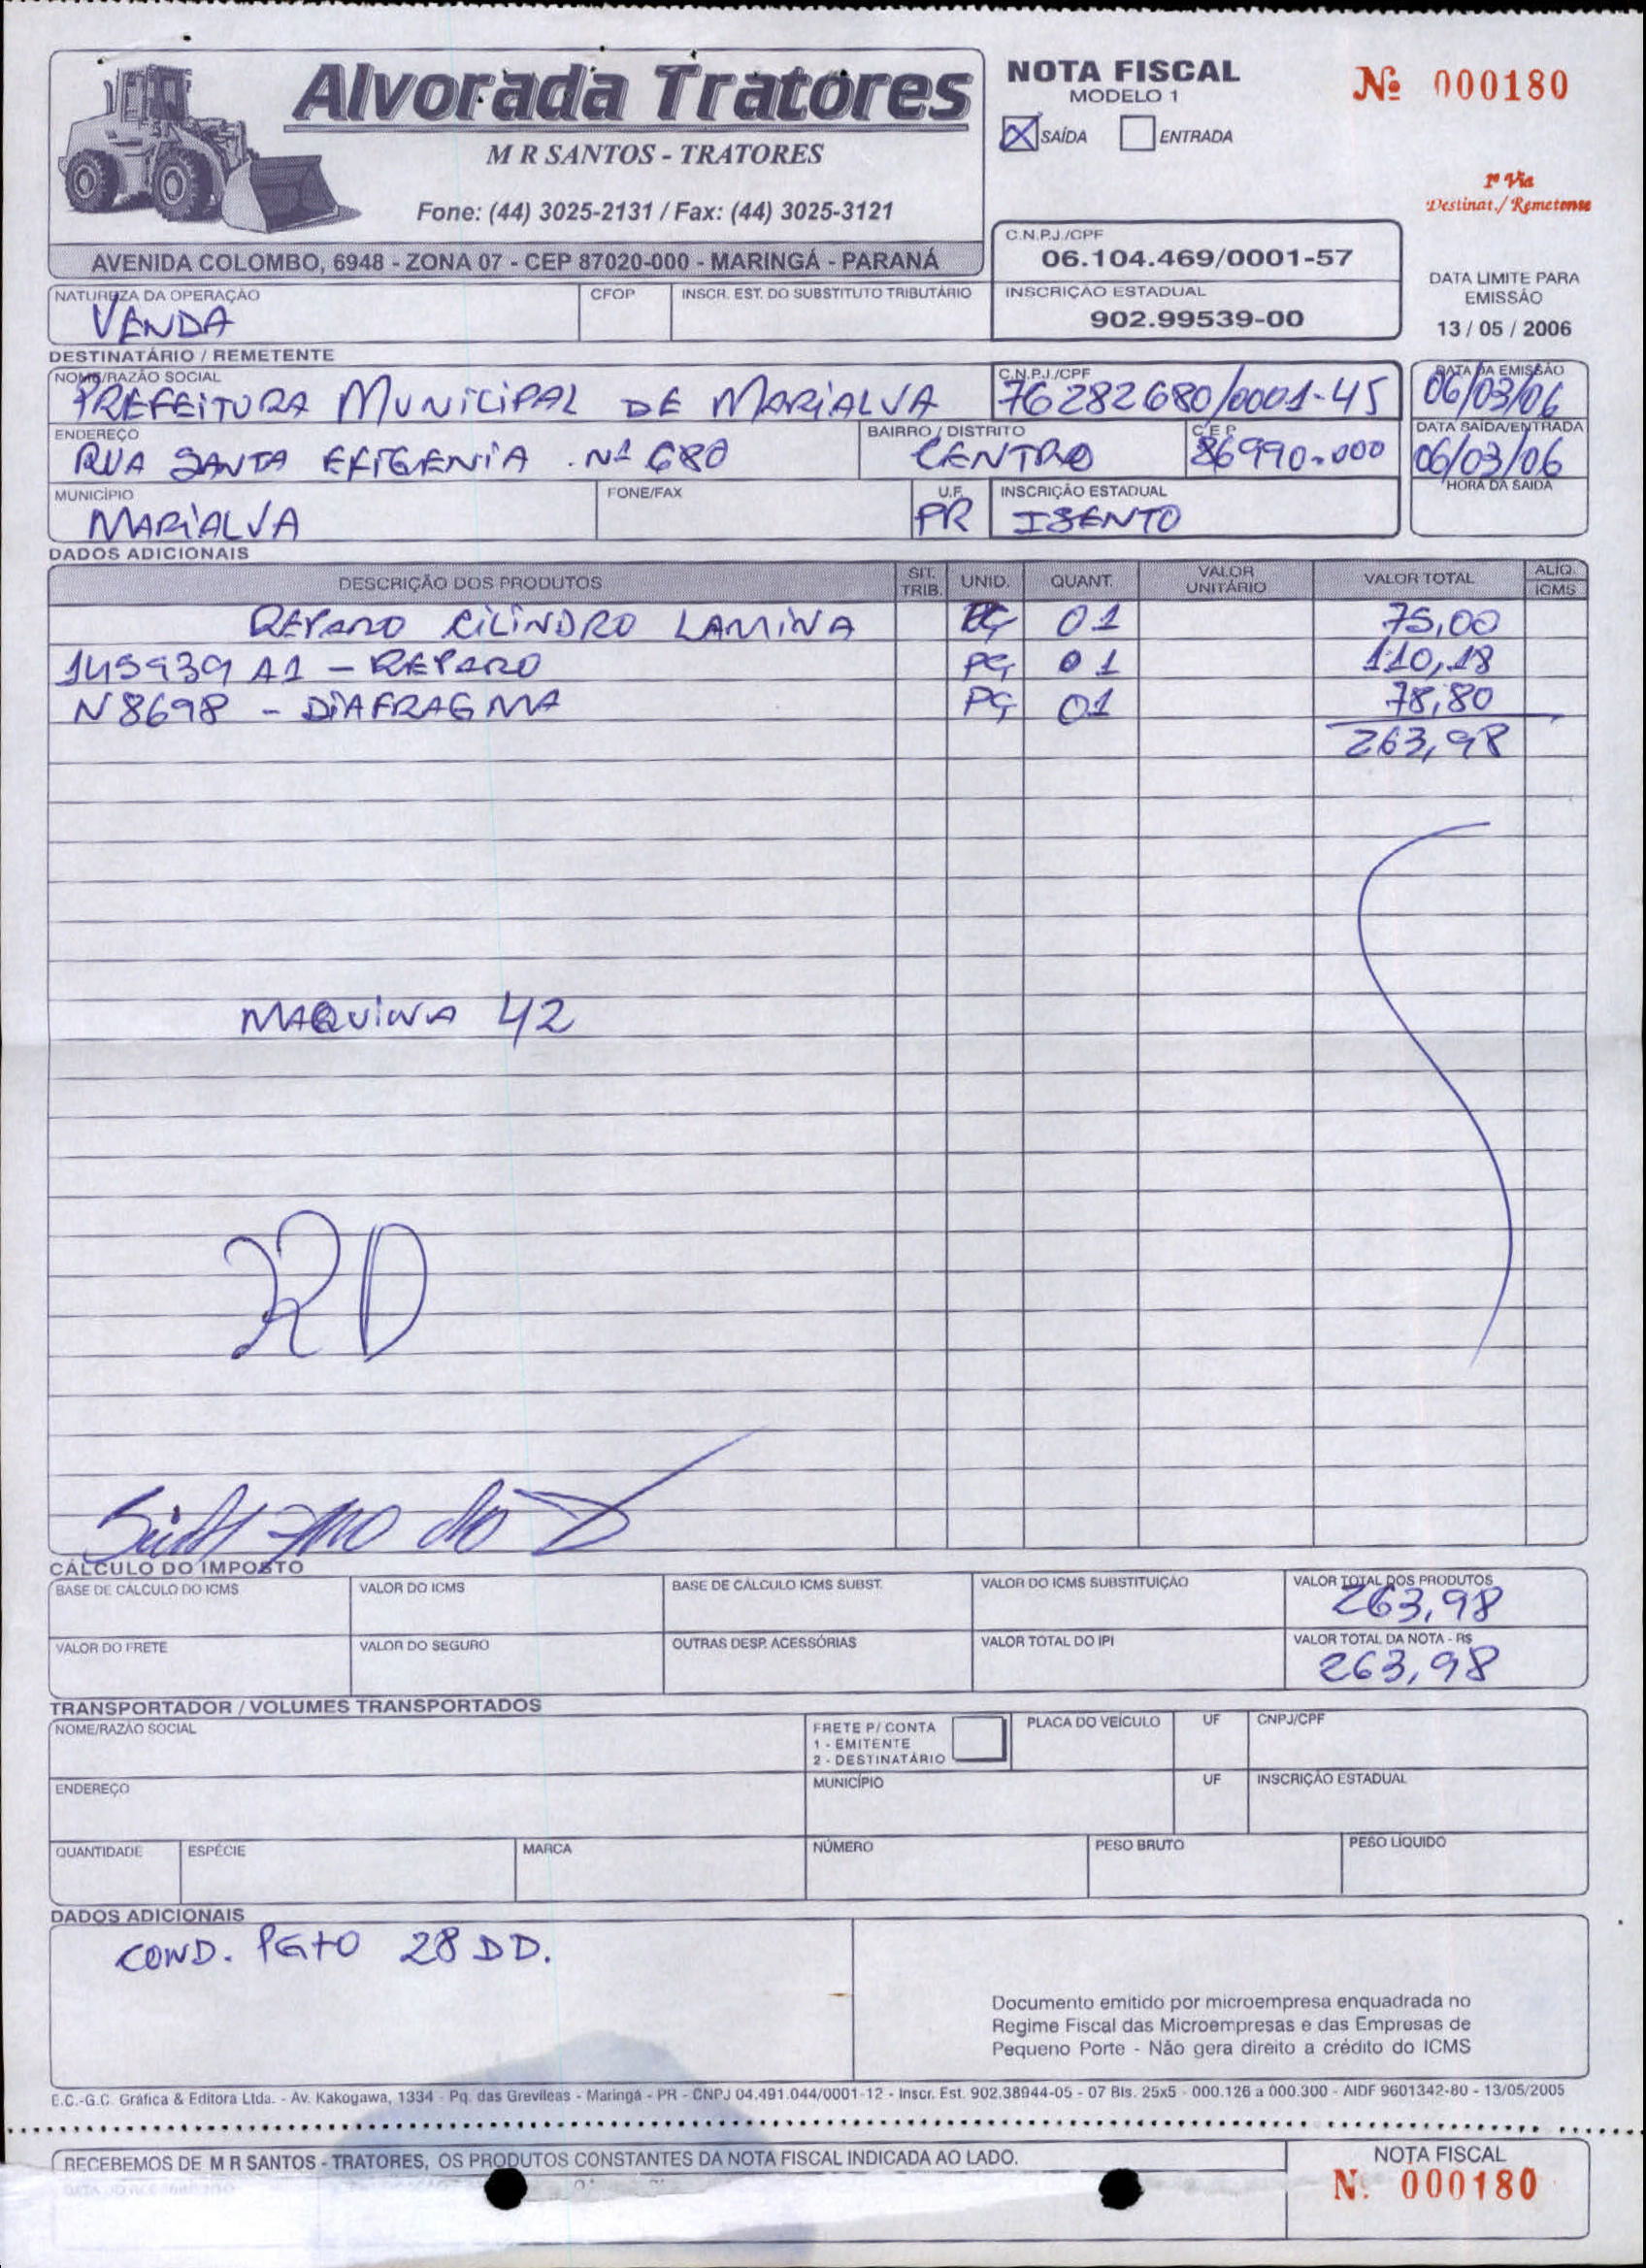 Alvorada Tratores
M R SANTOS - TRATORES
Fone: (44) 3025-2131 / Fax: (44) 3025-3121
AVENIDA COLOMBO, 6948 - ZONA 07 - CEP 87020-000 - MARINGÁ - PARANÁ
NOTA FISCAL
MODELO 1
SAÍDA ENTRADA
Nº 000180
1ª Via
Destinat./ Remetente
C.N.P.J./CPF
06.104.469/0001-57
INSCRIÇÃO ESTADUAL
902.99539-00
DATA LIMITE PARA
EMISSÃO
13 / 05 / 2006
NATUREZA DA OPERAÇÃO CFOP INSCR. EST. DO SUBSTITUTO TRIBUTÁRIO
VENDA
DESTINATÁRIO / REMETENTE
NOME/RAZÃO SOCIAL C.N.P.J./CPF DATA DA EMISSÃO
PREFEITURA MUNICIPAL DE MARIALVA 76282680/0001-45 06/03/06
ENDEREÇO BAIRRO / DISTRITO C E P DATA SAÍDA/ENTRADA
RUA SANTA EFIGENIA Nº 680 CENTRO 86990-000 06/03/06
MUNICÍPIO FONE/FAX U.F. INSCRIÇÃO ESTADUAL HORA DA SAÍDA
MARIALVA PR ISENTO
DADOS ADICIONAIS
DESCRIÇÃO DOS PRODUTOS SIT. TRIB. UNID. QUANT. VALOR UNITÁRIO VALOR TOTAL ALÍQ. ICMS
REPARO CILINDRO LAMINA PÇ 01 75,00
145939 A1 - REPARO PÇ 01 110,18
N8698 - DIAFRAGMA PÇ 01 78,80
263,98
MAQUINA 42
CÁLCULO DO IMPOSTO
BASE DE CÁLCULO DO ICMS VALOR DO ICMS BASE DE CÁLCULO ICMS SUBST. VALOR DO ICMS SUBSTITUIÇÃO VALOR TOTAL DOS PRODUTOS
263,98
VALOR DO FRETE VALOR DO SEGURO OUTRAS DESP. ACESSÓRIAS VALOR TOTAL DO IPI VALOR TOTAL DA NOTA - R$
263,98
TRANSPORTADOR / VOLUMES TRANSPORTADOS
NOME/RAZÃO SOCIAL FRETE P/ CONTA PLACA DO VEÍCULO UF CNPJ/CPF
1 - EMITENTE
2 - DESTINATÁRIO
ENDEREÇO MUNICÍPIO UF INSCRIÇÃO ESTADUAL
QUANTIDADE ESPÉCIE MARCA NÚMERO PESO BRUTO PESO LÍQUIDO
DADOS ADICIONAIS
COND. PGTO 28 DD.
Documento emitido por microempresa enquadrada no
Regime Fiscal das Microempresas e das Empresas de
Pequeno Porte - Não gera direito a crédito do ICMS
E.C.-G.C. Gráfica & Editora Ltda. - Av. Kakogawa, 1334 - Pq. das Grevíleas - Maringá - PR - CNPJ 04.491.044/0001-12 - Inscr. Est. 902.38944-05 - 07 Bls. 25x5 - 000.126 a 000.300 - AIDF 9601342-80 - 13/05/2005
RECEBEMOS DE M R SANTOS - TRATORES, OS PRODUTOS CONSTANTES DA NOTA FISCAL INDICADA AO LADO.
NOTA FISCAL
N. 000180